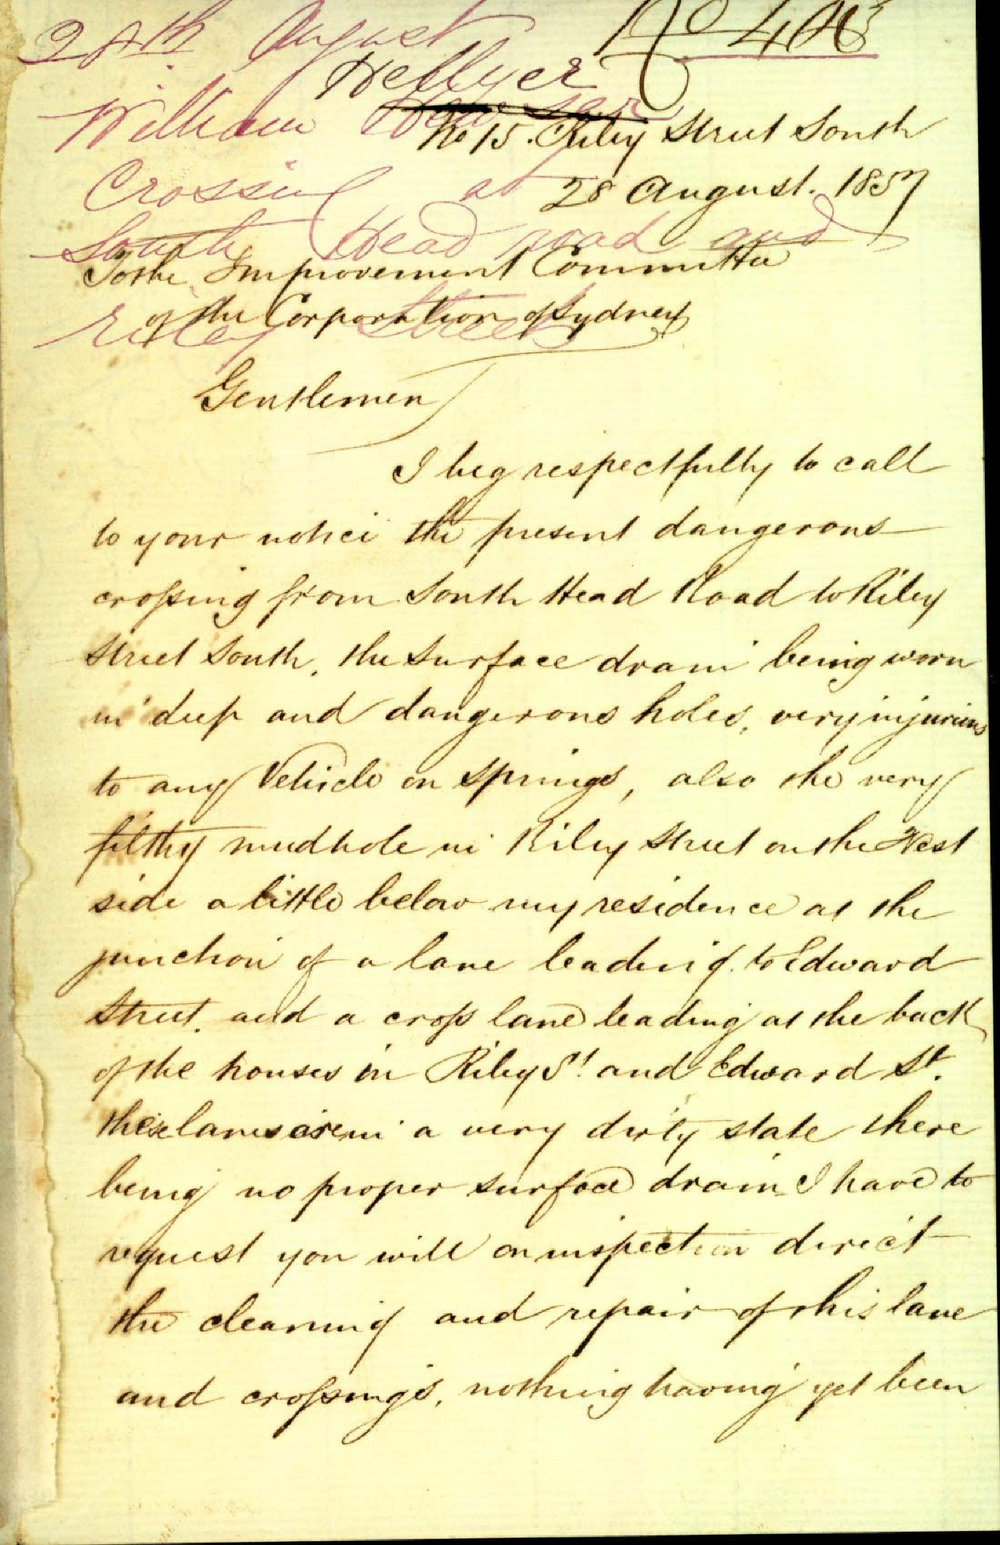 28th August
No 443
William Hellyer
No 15. Riley Street South
Crossing at
28 August. 1857
South Head road and
To the Improvement Committee
of the Corporation of Sydney
Riley Street
Gentlemen
I beg respectfully to call
to your notice the present dangerous
crossing from South Head Road to Riley
Street South, the surface drain being worn
in deep and dangerous holes, very injurious
to any Vehicle on Springs, also the very
filthy mudhole in Riley Street on the West
side a little below my residence at the
junction of a lane leading to Edward
Street. and a cross lane leading at the back
of the houses in Riley St. and Edward St.
these lanes are in a very dirty state there
being no proper surface drain I have to
request you will on inspection direct
the cleaning and repair of this lane
and crossings, nothing having yet been